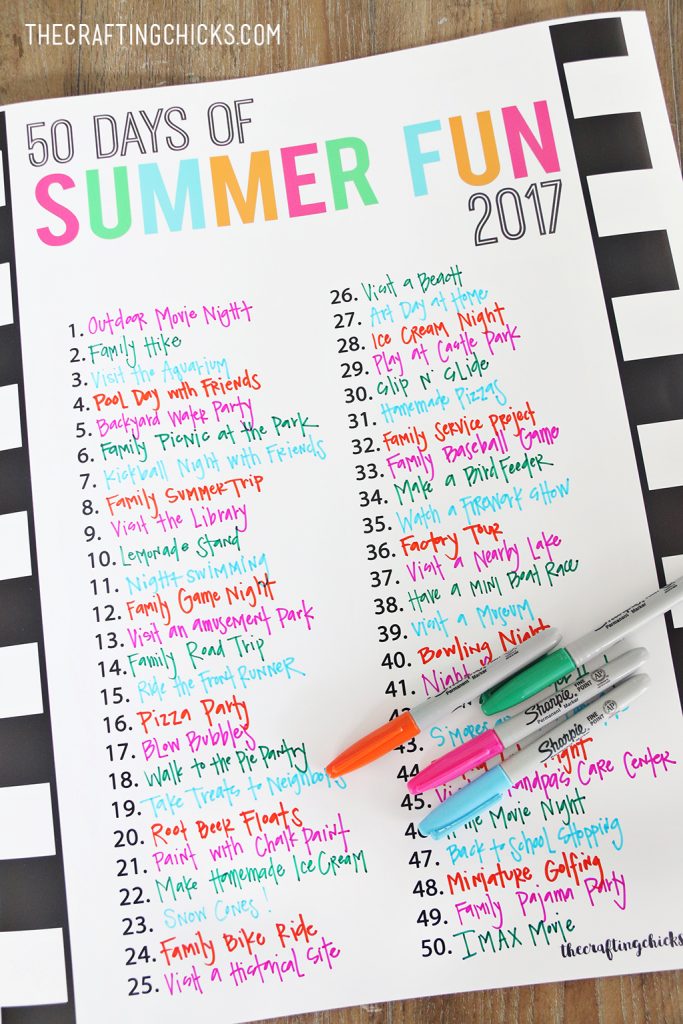 THECRAFTINGCHICKS.COM
50 DAYS OF
SUMMER FUN
2017
1. Outdoor Movie Night
2. Family Hike
3. Visit the Aquarium
4. Pool Day with Friends
5. Backyard Water Party
6. Family Picnic at the Park
7. Kickball Night with Friends
8. Family Summer Trip
9. Visit the Library
10. Lemonade Stand
11. Night swimming
12. Family Game Night
13. Visit an amusement Park
14. Family Road Trip
15. Ride the FrontRunner
16. Pizza Party
17. Blow Bubbles
18. Walk to the Pie Pantry
19. Take Treats to Neighbors
20. Root Beer Floats
21. Paint with Chalk Paint
22. Make Homemade Ice Cream
23. Snow Cones!
24. Family Bike Ride
25. Visit a Historical Site
26. Visit a Beach
27. Art Day at Home
28. Ice Cream Night
29. Play at Castle Park
30. Slip N' Slide
31. Homemade Pizzas
32. Family Service Project
33. Family Baseball Game
34. Make a Bird Feeder
35. Watch a Firework Show
36. Factory Tour
37. Visit a Nearby Lake
38. Have a Mini Boat Race
39. Visit a Museum
40. Bowling Night
41. Night
43. S'mores
44
45. Care Center
46 Movie Night
47. Back to School Shopping
48. Miniature Golfing
49. Family Pajama Party
50. IMAX Movie
thecraftingchicks
Permanent Marker
Sharpie
FINE POINT
AP
Permanent Marker
Sharpie
FINE POINT
AP
Permanent Marker